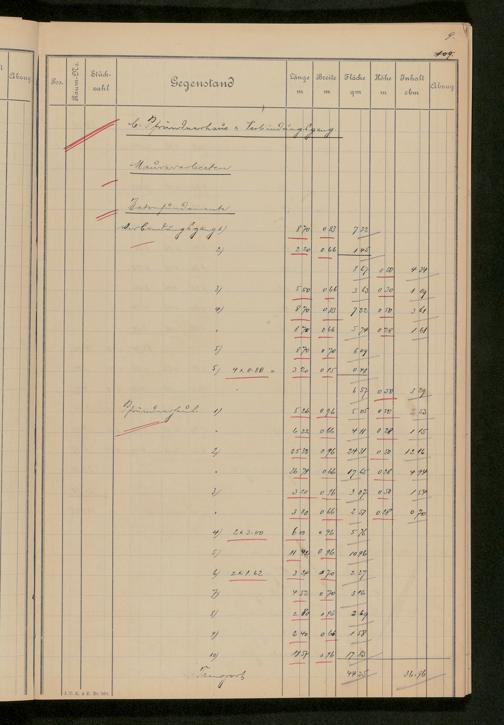 9.
109.
Pos. Raum-No. Stückzahl Gegenstand Länge m Breite m Fläche qm Höhe m Inhalt cbm Abzug
C. Pfründnerhaus u. Verbindungsgang
Maurerarbeiten
Betonfundamente
Verbindungsgang 1) 8.70 0.83 7.22
2) 2.20 0.66 1.45
8.67 0.50 4.34
3) 5.50 0.66 3.63 0.30 1.09
4) 8.70 0.83 7.22 0.50 3.61
" 8.70 0.66 5.74 0.28 1.61
5) 8.70 0.70 6.09
5) 4 x 0.80 = 3.20 0.15 0.48
6.57 0.50 3.29
Pfründnerhaus 1) 5.26 0.96 5.05 0.50 2.53
" 6.22 0.66 4.11 0.28 1.15
2) 25.32 0.96 24.31 0.50 12.16
" 26.74 0.66 17.65 0.28 4.94
3) 3.20 0.96 3.07 0.50 1.54
" 3.80 0.66 2.51 0.28 0.70
4) 2 x 3.00 6.00 0.96 5.76
5) 11.42 0.96 10.96
6) 2 x 1.62 3.24 0.70 2.27
7) 4.52 0.70 3.16
8) 2.80 0.96 2.69
9) 2.40 0.66 1.58
10) 0.96
Transport 36.96